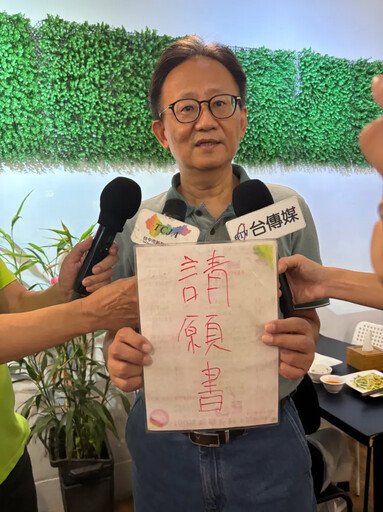 台傳媒
請
願
書